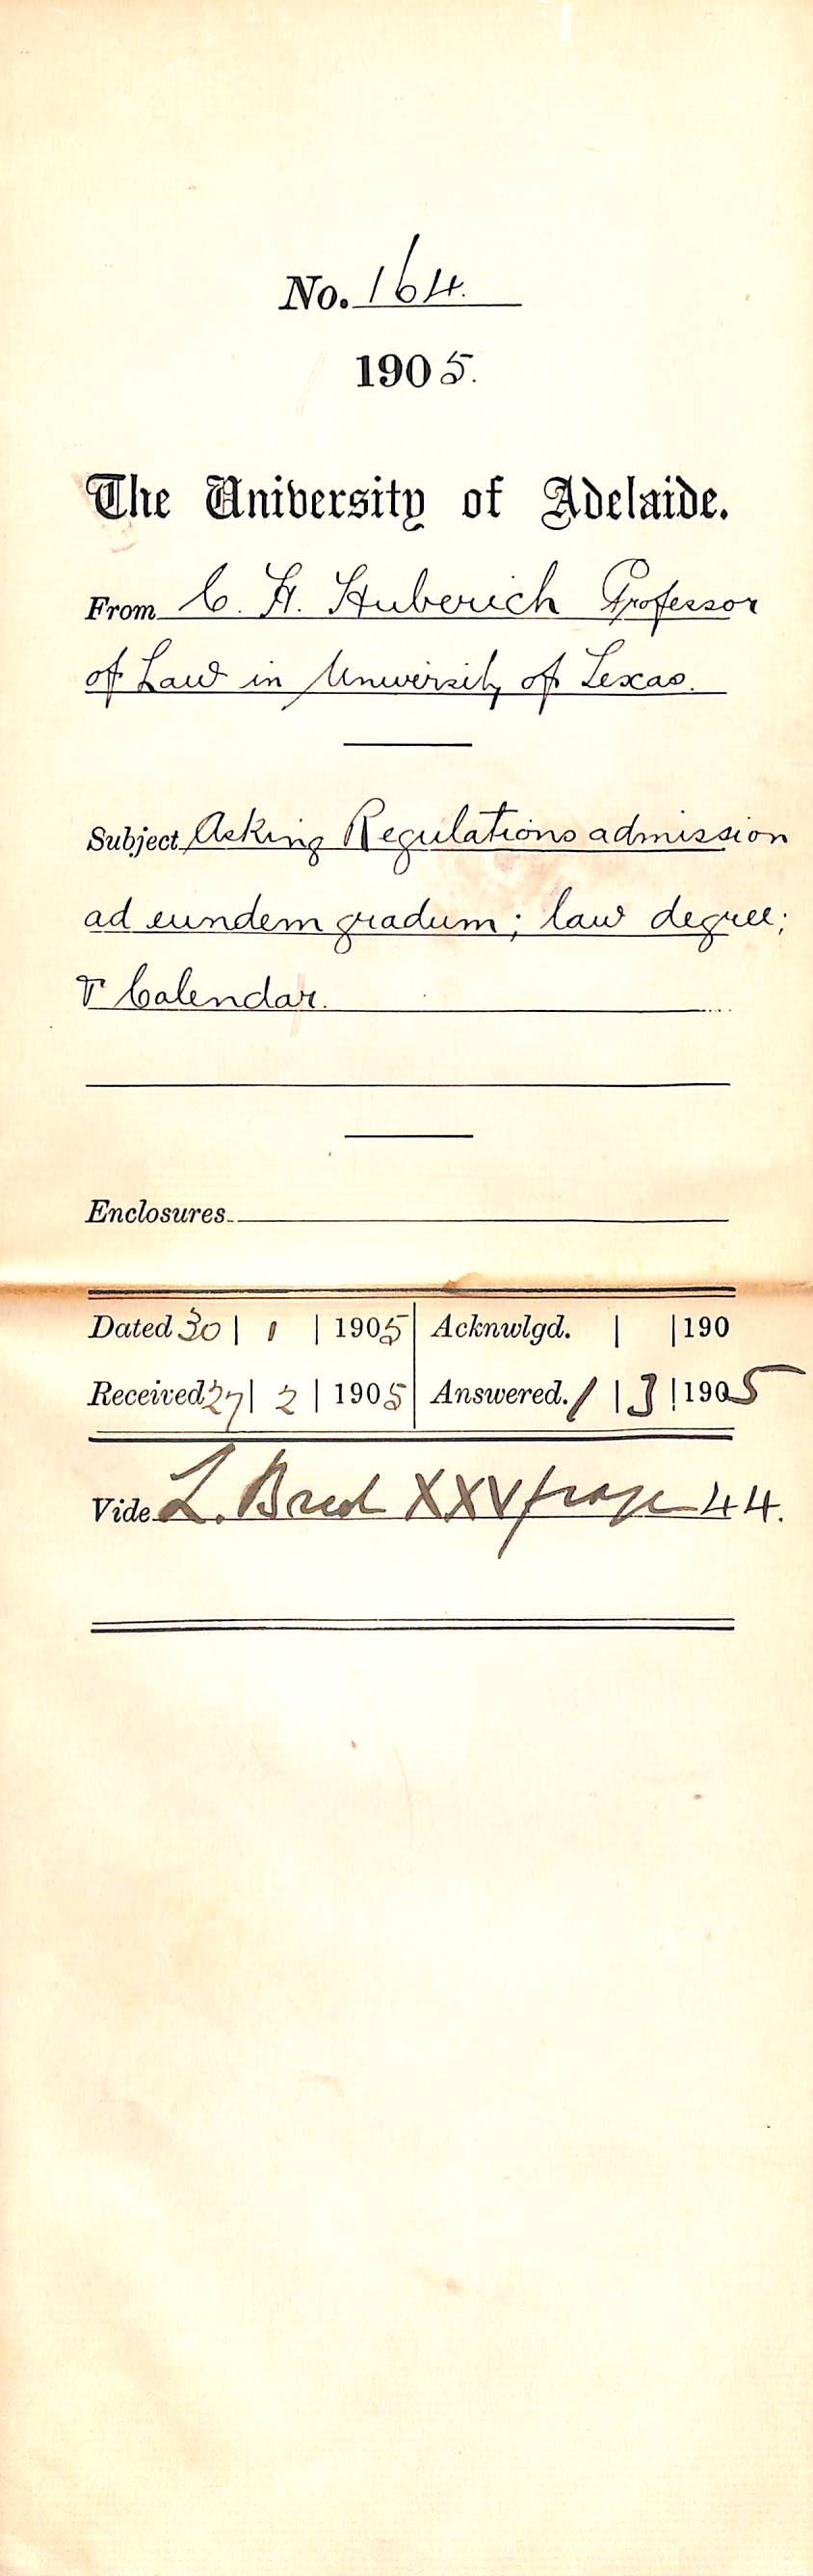 No. 164.
1905.
The University of Adelaide.
From C. H. Huberich Professor
of Law in University of Texas.
Subject Asking Regulations admission
ad eundem gradum; law degree;
& Calendar.
Enclosures
Dated 30 | 1 | 1905 Acknwlgd. | | 190
Received 27 | 2 | 1905 Answered. 1 | 3 | 1905
Vide L. XXV page 44.